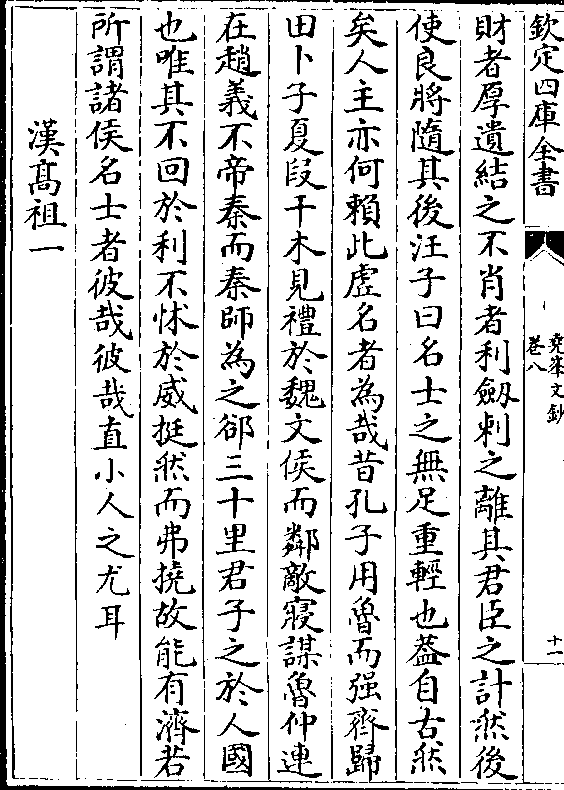 欽定四庫全書
堯峯文鈔
卷八
十一
財者厚遺結之不肖者利劔刺之離其君臣之計然後
使良將隨其後汪子曰名士之無足重輕也葢自古然
矣人主亦何賴此虛名者為哉昔孔子用魯而强齊歸
田卜子夏叚干木見禮於魏文侯而鄰敵寢謀魯仲連
在趙義不帝秦而秦師為之郤三十里君子之於人國
也唯其不回於利不怵於威挺然而弗撓故能有濟若
所謂諸侯名士者彼哉彼哉直小人之尤耳
漢髙祖一